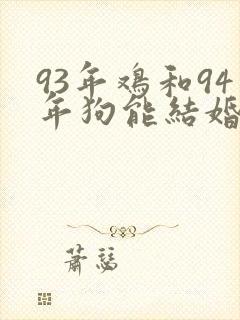 93年鸡和94
年狗能結婚
萧瑟